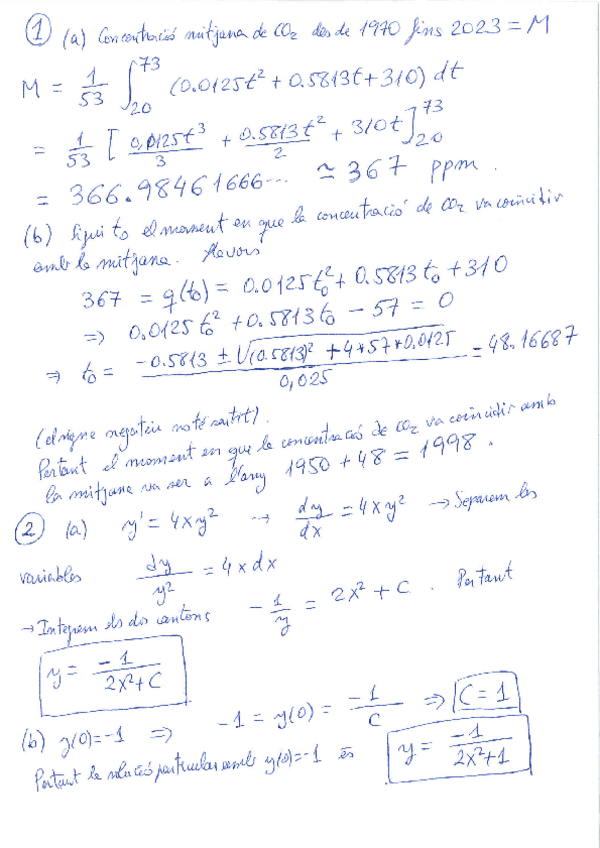 ① (a) Concentració mitjana de CO₂ des de 1970 fins 2023 = M
M = 1/53 ∫_20^73 (0.0125t² + 0.5813t + 310) dt
= 1/53 [ 0,0125t³/3 + 0.5813t²/2 + 310t ]_20^73
= 366.98461666... ≃ 367 ppm.
(b) Sigui t₀ el moment en que la concentració de CO₂ va coincidir
amb la mitjana. Alavors
367 = q(t₀) = 0.0125t₀² + 0.5813t₀ + 310
⇒ 0.0125t₀² + 0.5813t₀ - 57 = 0
⇒ t₀ = (-0.5813 ± √((0.5813)² + 4*57*0.0125)) / 0,025 = 48.16687
(el signe negatiu no té sentit).
Pertant el moment en que la concentració de CO₂ va coincidir amb
la mitjana va ser a l'any 1950 + 48 = 1998.
② (a) y' = 4xy² → dy/dx = 4xy² → Separem les
variables dy/y² = 4x dx
→ Integrem els dos cantons -1/y = 2x² + C. Pertant
y = -1/(2x²+C)
(b) y(0)=-1 ⇒ -1 = y(0) = -1/C ⇒ C = 1
Pertant la solució particular amb y(0)=-1 és y = -1/(2x²+1)